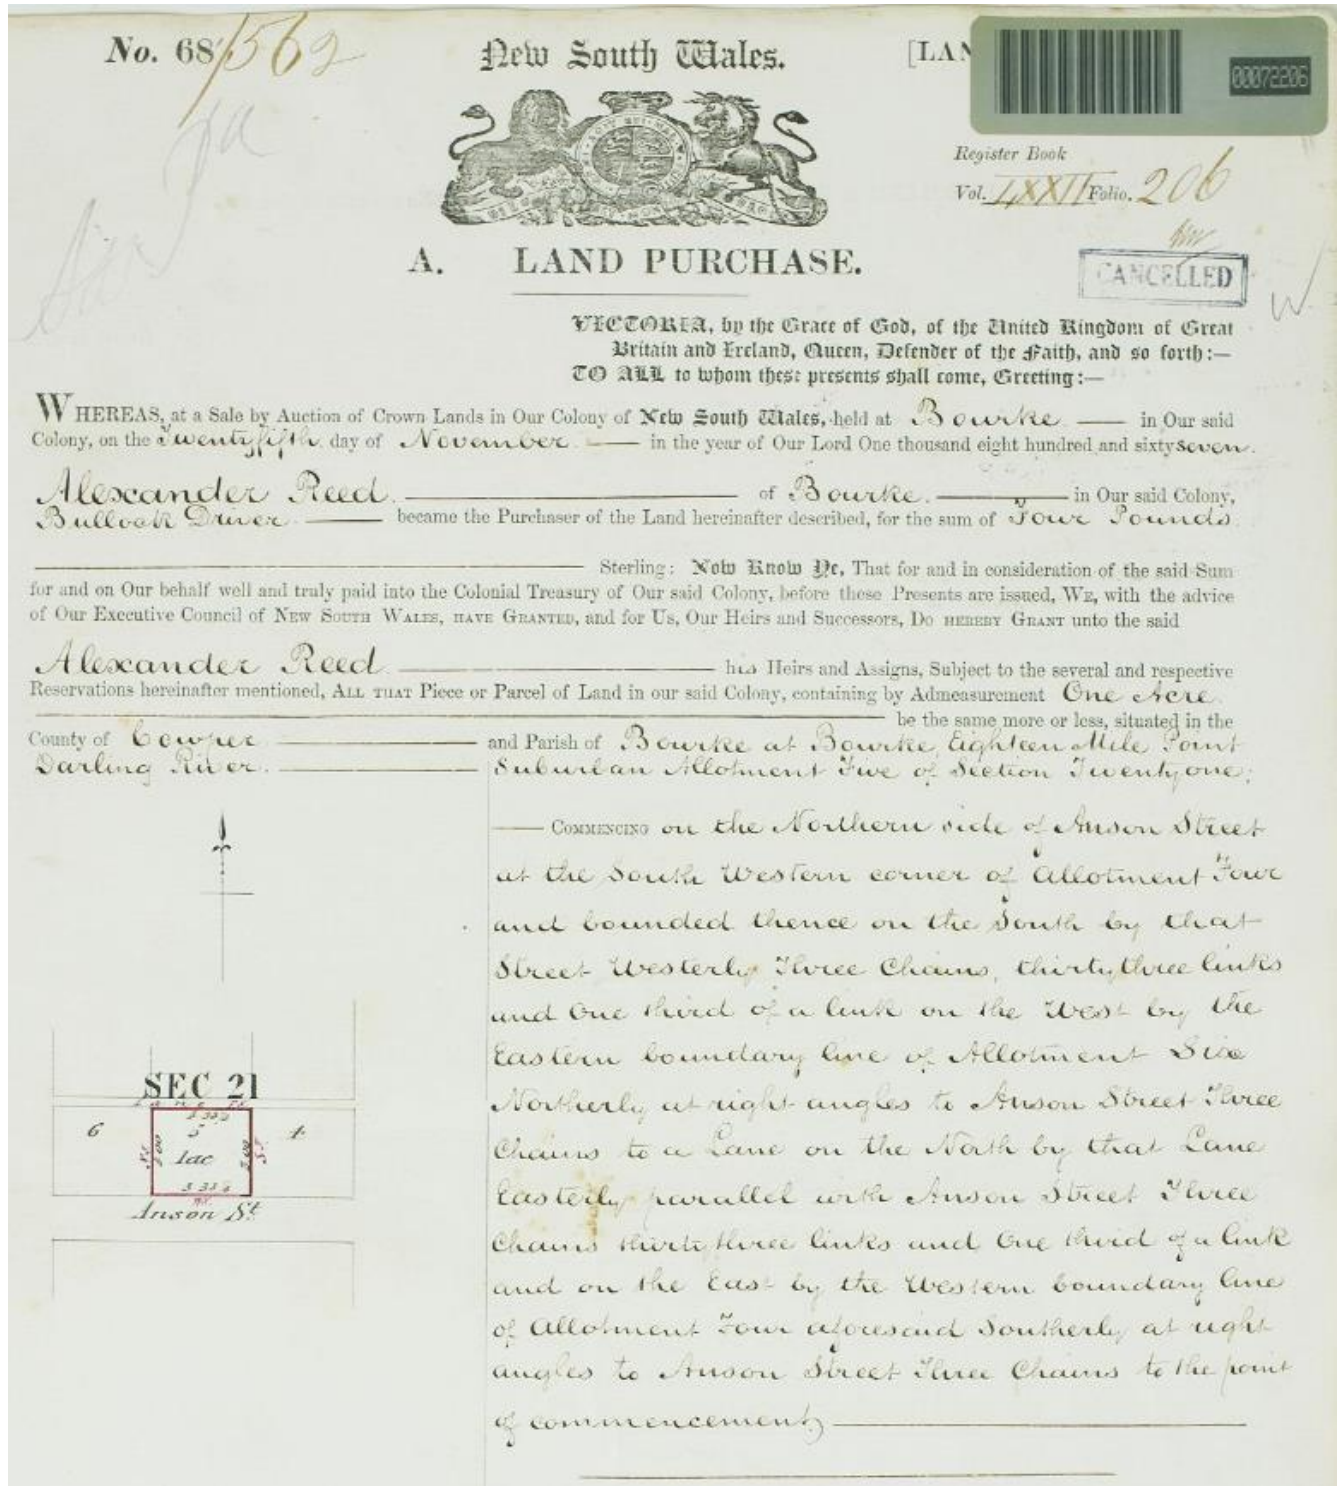 No. 68/562
New South Wales.
[LAN
00072206
Register Book
Vol. LXXII Folio. 206
CANCELLED
A. LAND PURCHASE.
VICTORIA, by the Grace of God, of the United Kingdom of Great
Britain and Ireland, Queen, Defender of the Faith, and so forth:—
TO ALL to whom these presents shall come, Greeting:—
WHEREAS, at a Sale by Auction of Crown Lands in Our Colony of New South Wales, held at Bourke — in Our said
Colony, on the Twentyfifth day of November — in the year of Our Lord One thousand eight hundred and sixty seven.
Alexander Reed. — of Bourke. — in Our said Colony,
Bullock Driver — became the Purchaser of the Land hereinafter described, for the sum of Four Pounds
— Sterling: Now Know Ye, That for and in consideration of the said Sum
for and on Our behalf well and truly paid into the Colonial Treasury of Our said Colony, before these Presents are issued, WE, with the advice
of Our Executive Council of NEW SOUTH WALES, HAVE GRANTED, and for Us, Our Heirs and Successors, DO HEREBY GRANT unto the said
Alexander Reed — his Heirs and Assigns, Subject to the several and respective
Reservations hereinafter mentioned, ALL THAT Piece or Parcel of Land in our said Colony, containing by Admeasurement One Acre
— be the same more or less, situated in the
County of Cowper — and Parish of Bourke at Bourke, Eighteen Mile Point
Darling River. — Suburban Allotment Five of Section Twentyone;
— COMMENCING on the Northern side of Anson Street
at the South Western corner of Allotment Four
and bounded thence on the South by that
Street Westerly Three Chains, thirtythree links
and One third of a link on the West by the
Eastern boundary line of Allotment Six
Northerly at right angles to Anson Street Three
Chains to a Lane on the North by that Lane
Easterly parallel with Anson Street Three
Chains thirtythree links and One third of a link
and on the East by the Western boundary line
of Allotment Four aforesaid Southerly at right
angles to Anson Street Three Chains to the point
of commencement,
SEC 21
Lane
3.33⅓
6
5
4
3.00
1ac
3.00
3.33⅓
Anson St.